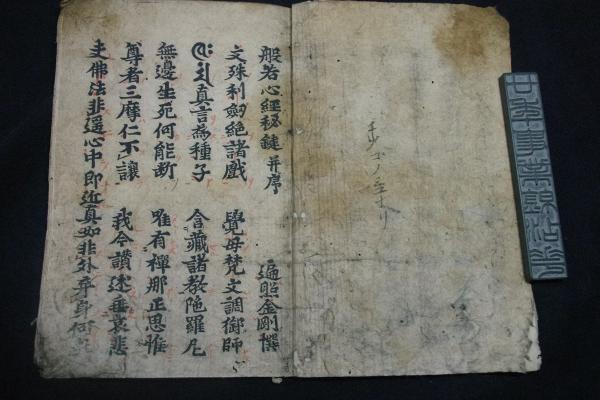 般若心經秘鍵 并序 遍照金剛撰
文殊利劒絶諸戯 覺母梵文調御師
真言為種子 含藏諸教陁羅尼
無邊生死何能断 唯有禪那正思惟
尊者三摩仁不讓 我今讃述垂哀悲
夫佛法非遥心中即近真如非外棄身何